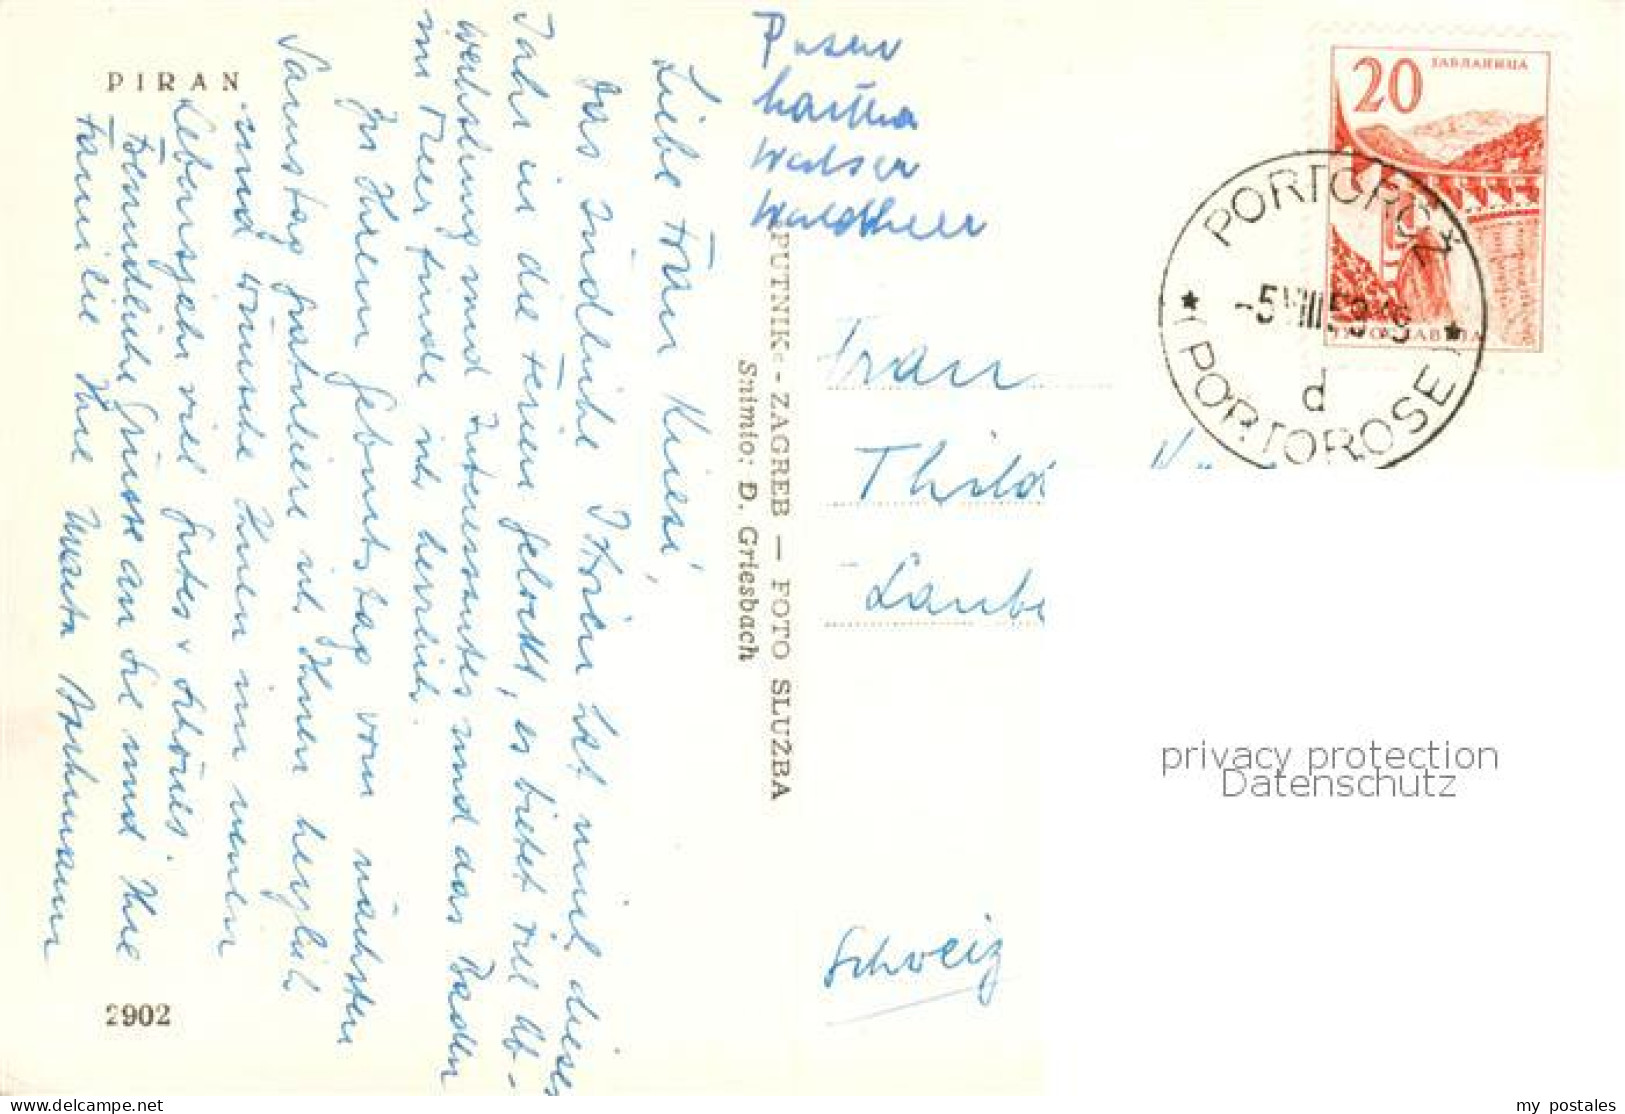 PIRAN
Liebe Frau Kuesi,
Das südliche Istrien hat mich dieses
Jahr in die Ferien gelockt, es bietet viel Ab-
wechslung und Interessantes und das Baden
im Meer finde ich herrlich.
Zu Ihrem Geburtstag vom nächsten
Samstag gratuliere ich Ihnen herzlich
und wünsche Ihnen im neuen
Lebensjahr viel Gutes & Schönes.
Freundliche Grüsse an Sie und Ihre
Familie Ihre Marta Bachmann
2902
PUTNIK - ZAGREB — FOTO SLUŽBA
Snimio: Đ. Griesbach
Martha
Walser
Frau
Thild
Laube
Schweiz
20
ЈАБЛАНИЦА
ЈУГОСЛАВИЈА
PORTOROŽ
-5.VIII.59.-
d
(PORTOROSE)
privacy protection
Datenschutz
my postales
Delcampe.net